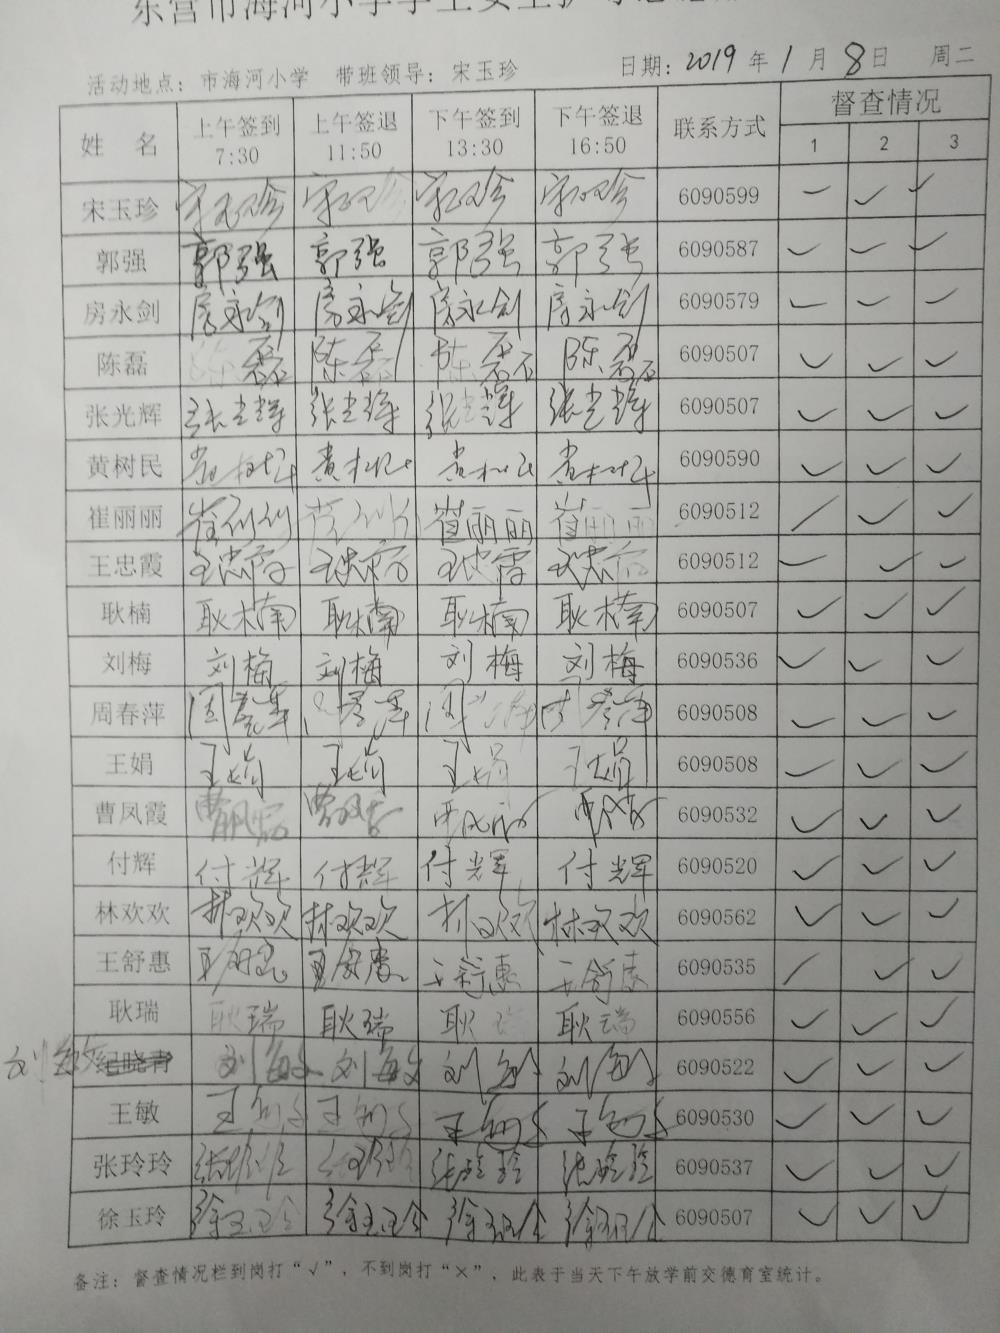 东营市海河小学学生安全护
活动地点：市海河小学 带班领导：宋玉珍 日期：2019年1月8日 周二
姓 名 上午签到 7:30 上午签退 11:50 下午签到 13:30 下午签退 16:50 联系方式 督查情况
1 2 3
宋玉珍 宋玉珍 宋玉珍 宋玉珍 宋玉珍 6090599 ✓ ✓ ✓
郭强 郭强 郭强 郭强 郭强 6090587 ✓ ✓ ✓
房永剑 房永剑 房永剑 房永剑 房永剑 6090579 ✓ ✓ ✓
陈磊 陈磊 陈磊 陈磊 陈磊 6090507 ✓ ✓ ✓
张光辉 张光辉 张光辉 张光辉 张光辉 6090507 ✓ ✓ ✓
黄树民 黄树民 黄树民 黄树民 黄树民 6090590 ✓ ✓ ✓
崔丽丽 崔丽丽 崔丽丽 崔丽丽 崔丽丽 6090512 ✓ ✓ ✓
王忠霞 王忠霞 王忠霞 王忠霞 王忠霞 6090512 ✓ ✓ ✓
耿楠 耿楠 耿楠 耿楠 耿楠 6090507 ✓ ✓ ✓
刘梅 刘梅 刘梅 刘梅 刘梅 6090536 ✓ ✓ ✓
周春萍 周春萍 周春萍 周春萍 周春萍 6090508 ✓ ✓ ✓
王娟 王娟 王娟 王娟 王娟 6090508 ✓ ✓ ✓
曹凤霞 曹凤霞 曹凤霞 曹凤霞 曹凤霞 6090532 ✓ ✓ ✓
付辉 付辉 付辉 付辉 付辉 6090520 ✓ ✓ ✓
林欢欢 林欢欢 林欢欢 林欢欢 林欢欢 6090562 ✓ ✓ ✓
王舒惠 王舒惠 王舒惠 王舒惠 王舒惠 6090535 ✓ ✓ ✓
耿瑞 耿瑞 耿瑞 耿瑞 耿瑞 6090556 ✓ ✓ ✓
刘敏 纪晓青 刘敏 刘敏 刘敏 刘敏 6090522 ✓ ✓ ✓
王敏 王敏 王敏 王敏 王敏 6090530 ✓ ✓ ✓
张玲玲 张玲玲 张玲玲 张玲玲 张玲玲 6090537 ✓ ✓ ✓
徐玉玲 徐玉玲 徐玉玲 徐玉玲 徐玉玲 6090507 ✓ ✓ ✓
备注：督查情况栏到岗打“√”，不到岗打“×”，此表于当天下午放学前交德育室统计。